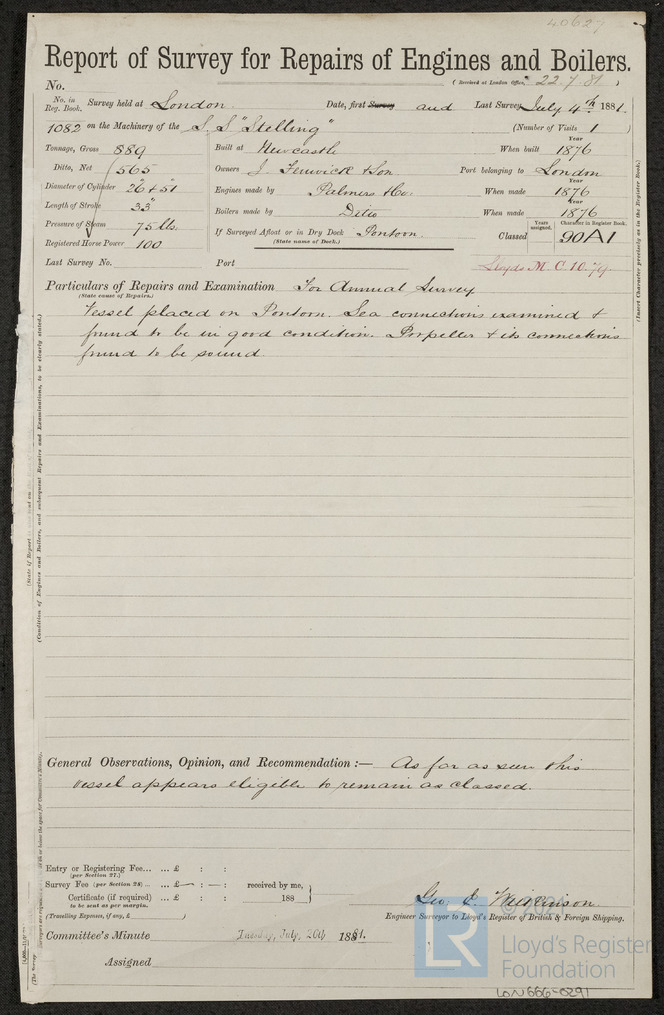 40627
Report of Survey for Repairs of Engines and Boilers.
No. (Received at London Office, 22.7.81)
No. in Reg. Book. Survey held at London. Date, first Survey and Last Survey July 4th 1881.
1082 on the Machinery of the S.S "Stelling" (Number of Visits 1)
Tonnage, Gross 889 Built at Newcastle When built Year 1876
Ditto, Net 565 Owners J. Fenwick & Son Port belonging to London
Diameter of Cylinder 26" + 51" Engines made by Palmers & Co. When made Year 1876
Length of Stroke 33" Boilers made by Ditto When made Year 1876
Pressure of Steam 75 lbs. If Surveyed Afloat or in Dry Dock Pontoon. Classed Years assigned. Character in Register Book. 90A1
Registered Horse Power 100 (State name of Dock.)
Last Survey No. Port Lloyds M.C. 10.79
Particulars of Repairs and Examination For Annual Survey
(State cause of Repairs.)
Vessel placed on Pontoon. Sea connections examined &
found to be in good condition. Propeller & its connections
found to be sound.
General Observations, Opinion, and Recommendation :— As far as seen this
vessel appears eligible to remain as classed.
Entry or Registering Fee... ... £ : :
(per Section 27.)
Survey Fee (per Section 28) ... ... £ — : — : received by me,
Certificate (if required) ... £ : : 188
to be sent as per margin.
(Travelling Expenses, if any, £ )
Geo. J. Wilkinson.
Engineer Surveyor to Lloyd's Register of British & Foreign Shipping.
Committee's Minute Tuesday, July, 26th 1881.
Assigned
(Insert Character precisely as in the Register Book.)
(Condition of Engines and Boilers, and subsequent Repairs and Examinations, to be clearly stated.)
LR
© 2021
Lloyd's Register
Foundation
LON666-0291